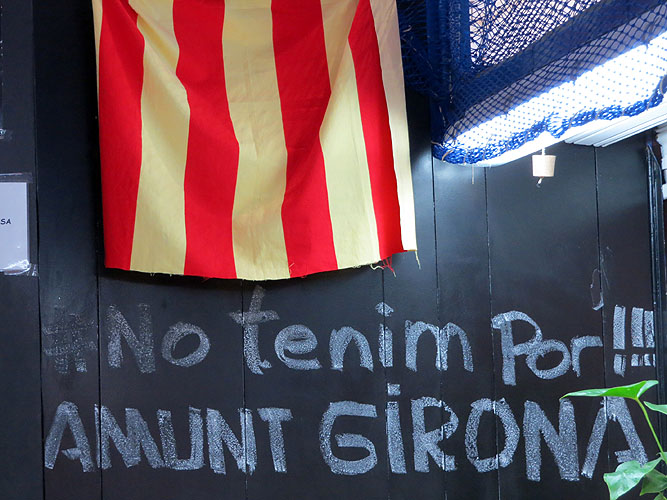 SA
#No tenim Por!!!
AMUNT GIRONA